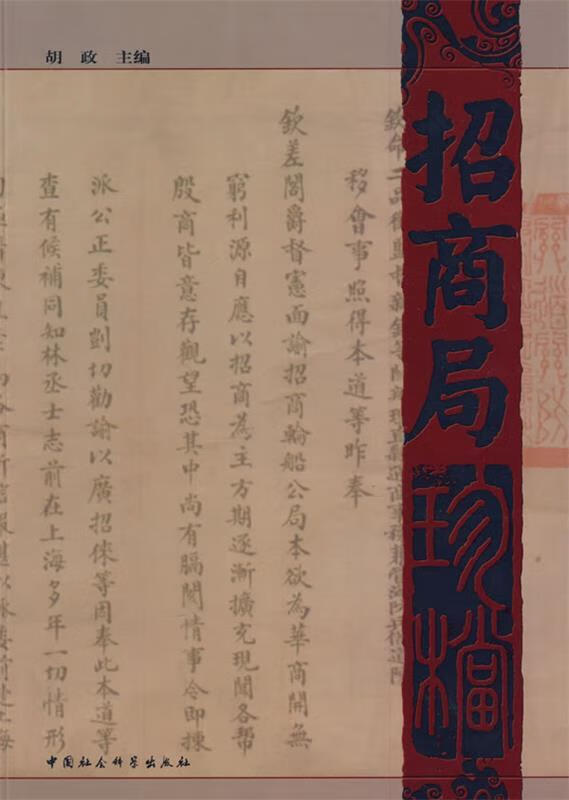 胡 政 主编
招商局
珍檔
移會事照得本道等昨奉
欽差閣爵督憲面諭招商輪船公局本欲為華商開無
窮利源自應以招商為主方期逐漸擴充現聞各幫
殷商皆意存觀望恐其中尚有膈閡情事合即揀
派公正委員剴切勸諭以廣招徠等因奉此本道等
查有候補同知林丞士志前在上海多年一切情形
中国社会科学出版社